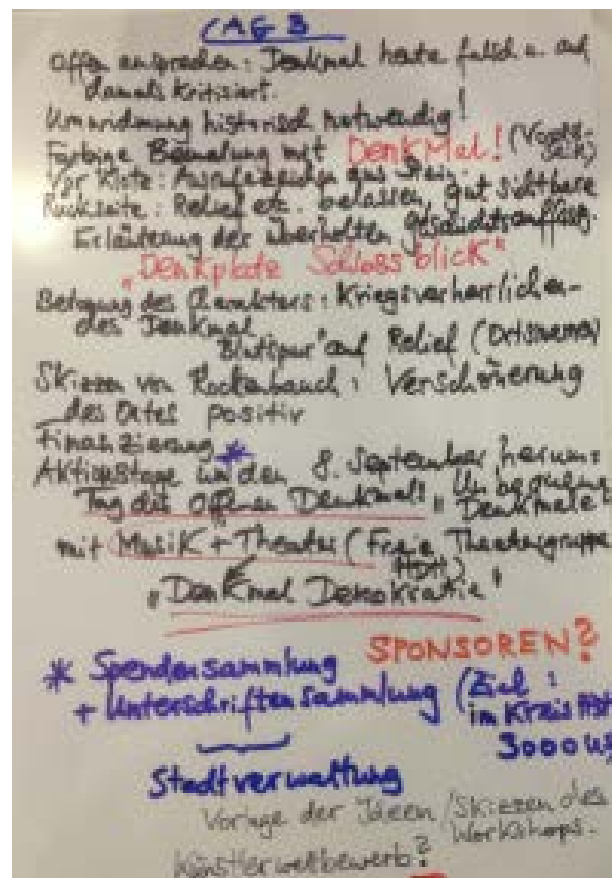 AG 3
Offen ansprechen: Denkmal heute falsch u. auch
damals kritisiert.
Umwidmung historisch notwendig!
Farbige Bemalung mit DenkMal! (Vorder-
seite)
Vor Klotz: Ausrufezeichen aus Stein.
Rückseite: Relief etc. belassen, gut sichtbare
Erläuterung der überholten Geschichtsauffassg.
"Denkplatz Schlossblick"
des Charakters: Kriegsverherrlichen-
des Denkmal
"Blutspur" auf Relief
Skizzen von Rockenbauch: Verschönerung
des Ortes positiv
Finanzierung *
Aktionstage um den 8. September herum:
Tag des offenen Denkmals "Unbequeme
Denkmale"
mit Musik + Theater (Freie Theatergruppe
HDH)
"Denkmal Demokratie"
SPONSOREN?
* Spendensammlung
+ Unterschriftensammlung (Ziel:
im Kreis
3000
Stadtverwaltung
Vorlage der Ideen / Skizzen des
Workshops.
Künstlerwettbewerb?